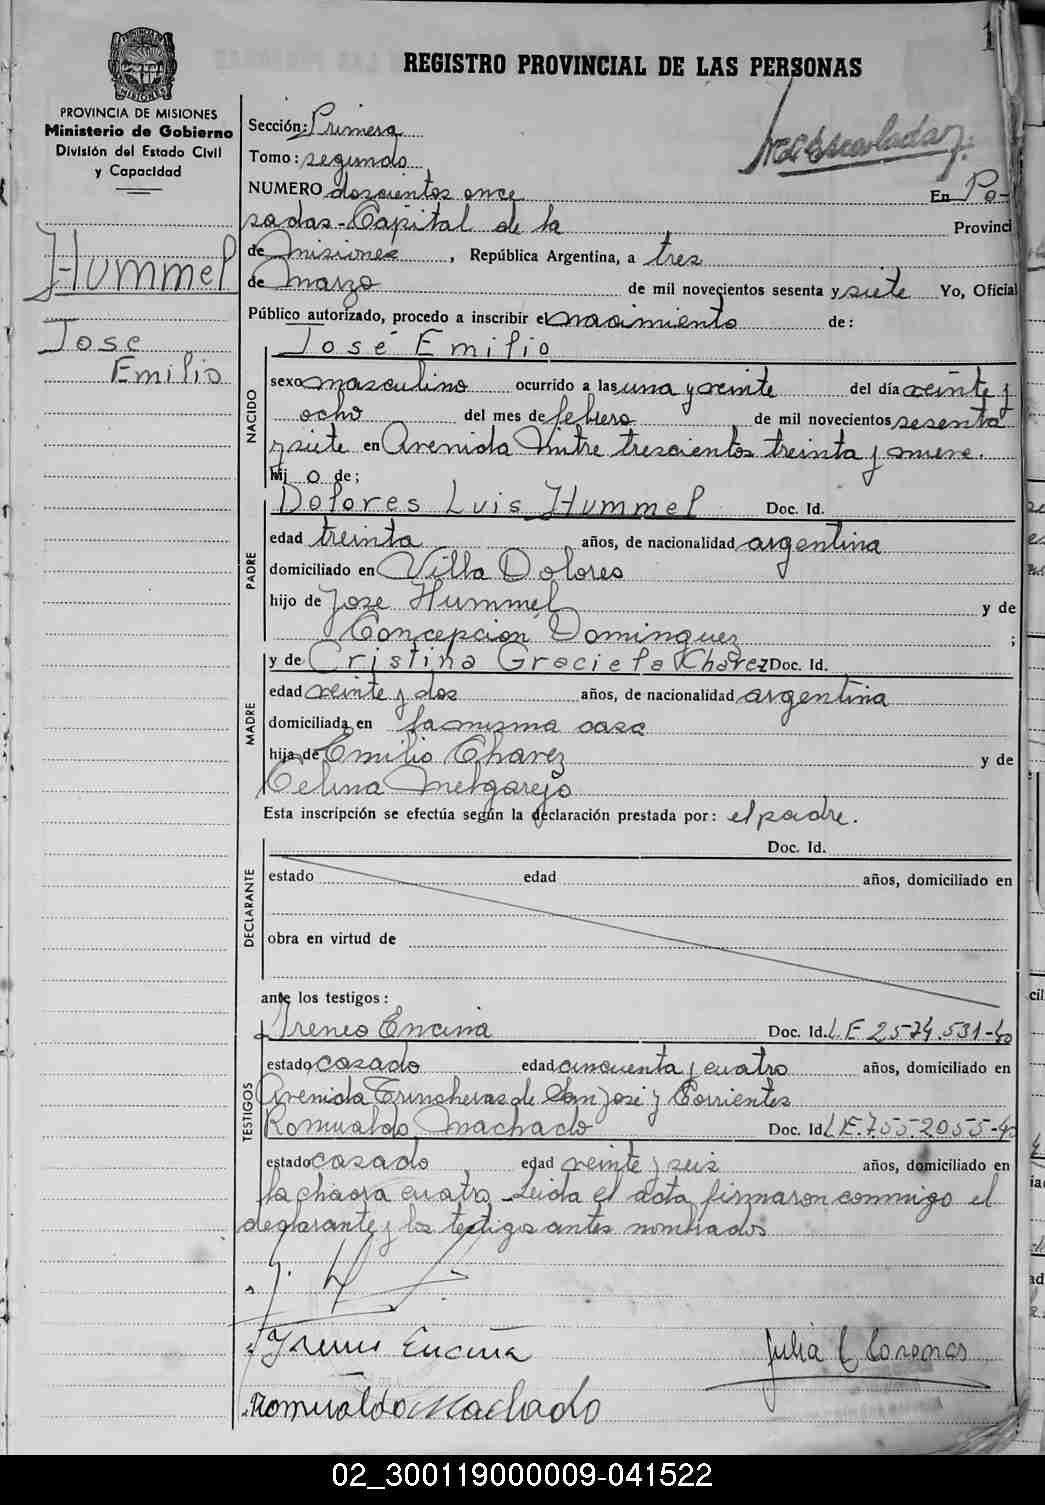 1
REGISTRO PROVINCIAL DE LAS PERSONAS
PROVINCIA DE MISIONES
Ministerio de Gobierno
División del Estado Civil
y Capacidad
Hummel
José
Emilio
Sección: Primera
Tomo: segundo
NUMERO doscientos once En Po-
sadas-Capital de la Provinci
de Misiones, República Argentina, a tres
de Marzo de mil novecientos sesenta y siete Yo, Oficial
Público autorizado, procedo a inscribir el nacimiento de:
José Emilio
NACIDO
sexo masculino ocurrido a las una y veinte del día veinte y
ocho del mes de febrero de mil novecientos sesenta
y siete en Avenida Mitre trescientos treinta y nueve.
hij o de;
Dolores Luis Hummel Doc. Id.
PADRE
edad treinta años, de nacionalidad argentina
domiciliado en Villa Dolores
hijo de José Hummel y de
Concepcion Dominguez ;
y de Cristina Graciela Chavez Doc. Id.
MADRE
edad veinte y dos años, de nacionalidad argentina
domiciliada en la misma casa
hija de Emilio Chavez y de
Celina Melgarejo
Esta inscripción se efectúa según la declaración prestada por: el padre.
Doc. Id.
DECLARANTE
estado edad años, domiciliado en
obra en virtud de
ante los testigos:
Ireneo Encina Doc. Id. L.E 2574.531-40
TESTIGOS
estado casado edad cincuenta y cuatro años, domiciliado en
Avenida Trincheras de San José y Corrientes
Romualdo Machado Doc. Id. L.E. 7.552055-40
estado casado edad veinte y seis años, domiciliado en
la chacra cuatro. Leida el acta firmaron conmigo el
declarante y los testigos antes nombrados
Ireneo Encina
Julia C
Romualdo Machado
02_300119000009-041522